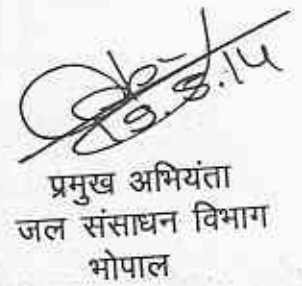 19.8.14
प्रमुख अभियंता
जल संसाधन विभाग
भोपाल